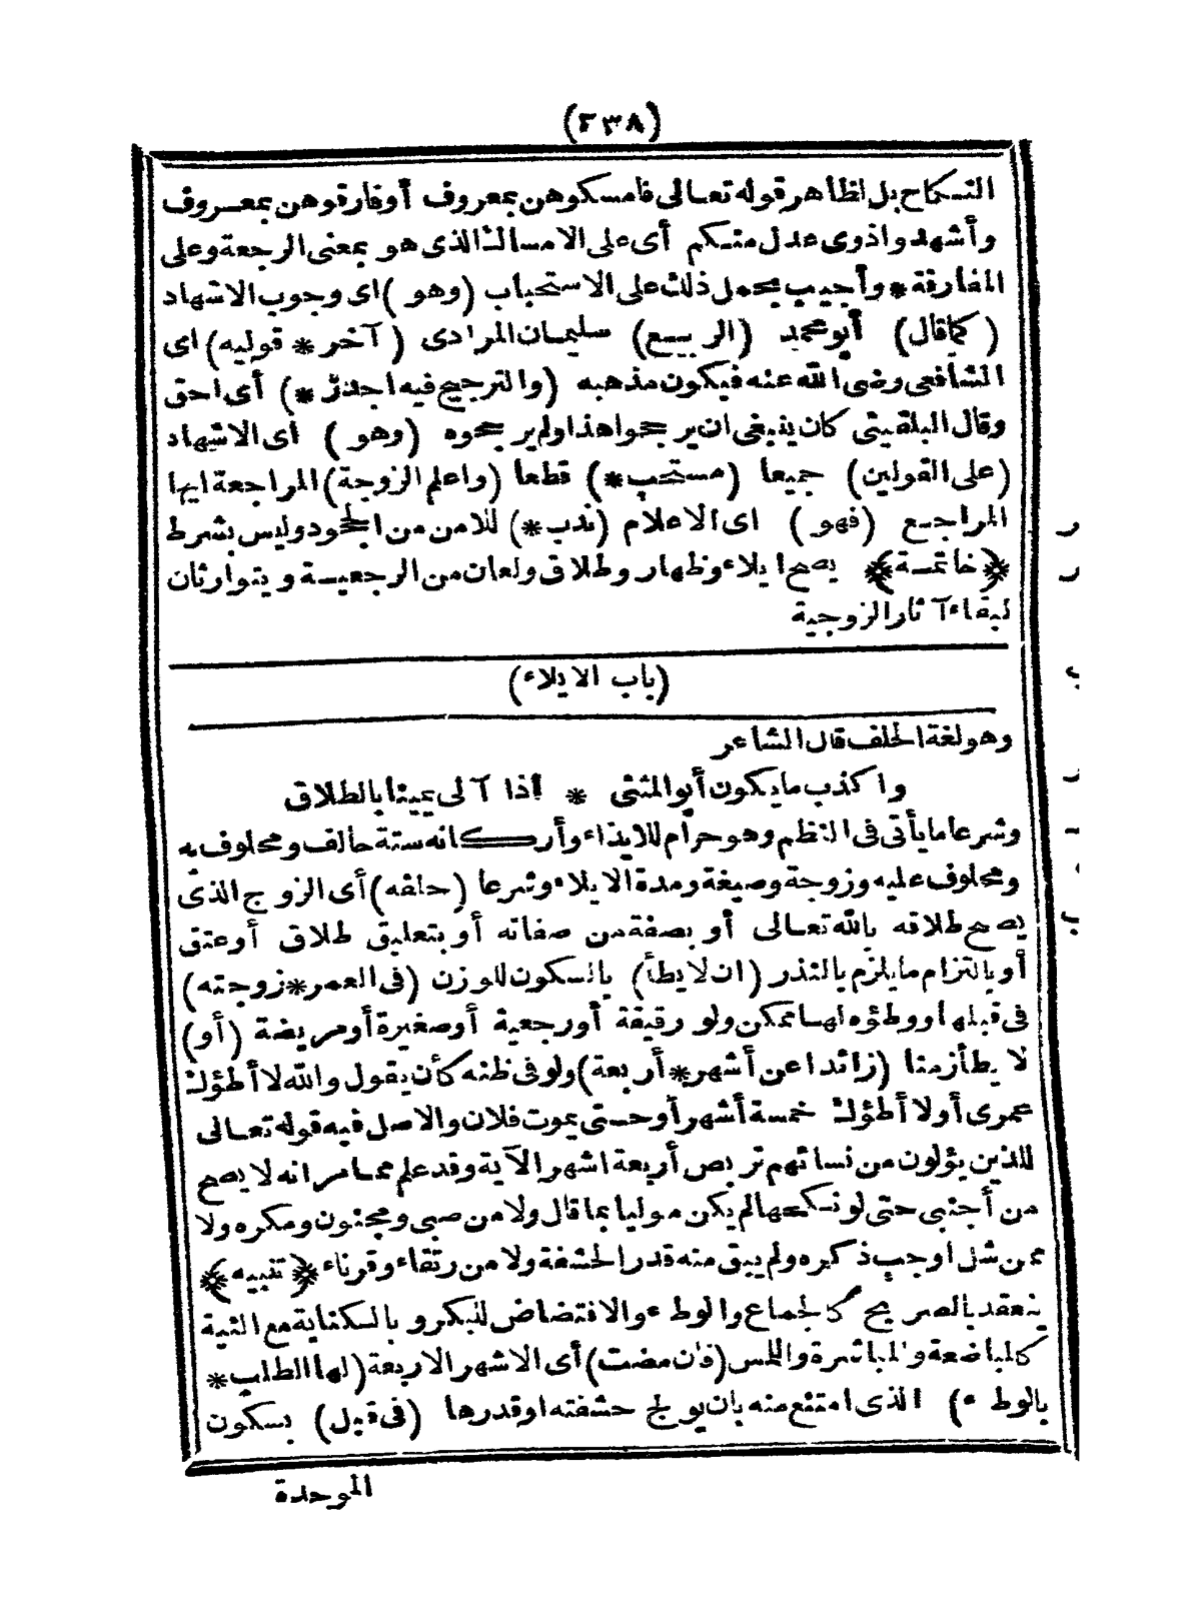 (٢٣٨)
النكاح بل لظاهر قوله تعالى فامسكوهن بمعروف أوفارقوهن بمعروف
وأشهدوا ذوى عدل منكم أى على الامساك الذى هو بمعنى الرجعة وعلى
المفارقة * وأجيب بحمل ذلك على الاستحباب (وهو) اى وجوب الاشهاد
(كما قال) أبو محمد (الربيع) سليمان المرادى (آخر * قوليه) اى
الشافعى رضى الله عنه فيكون مذهبه (والترجيح فيه اجدر *) أى احق
وقال البلقينى كان ينبغى ان يرجحوا هذا ولم يرجحوه (وهو) اى الاشهاد
(على القولين) جميعا (مستحب *) قطعا (واعلم الزوجة) المراجعة ايها
المراجع (فهو) اى الاعلام (ندب *) للامن من الجحود وليس بشرط
﴿خاتمة﴾ يصح ايلاء وظهار وطلاق ولعان من الرجعية ويتوارثان
لبقاء آثار الزوجية
(باب الايلاء)
وهو لغة الحلف قال الشاعر
واكذب ما يكون أبو المثنى * اذا آلى يمينا بالطلاق
وشرعا ما يأتى فى النظم وهو حرام للايذاء وأركانه ستة حالف ومحلوف به
ومحلوف عليه وزوجة وصيغة ومدة الايلاء وشرعا (حلفه) أى الزوج الذى
يصح طلاقه بالله تعالى أو بصفة من صفاته أو بتعليق طلاق أو عتق
أو بالتزام ما يلزم بالنذر (ان لا يطأ) بالسكون للوزن (فى العمر * زوجته)
فى قبلها ووطؤه لها ممكن ولو رقيقة أو رجعية أو صغيرة أو مريضة (أو)
لا يطأ زمنا (زائدا عن أشهر * أربعة) ولو فى ظنه كأن يقول والله لا أطؤك
عمرى أو لا أطؤك خمسة أشهر أو حتى يموت فلان والاصل فيه قوله تعالى
للذين يؤلون من نسائهم تربص أربعة اشهر الآية وقد علم مما مر انه لا يصح
من أجنبى حتى لو نكحها لم يكن موليا بما قال ولا من صبى ومجنون ومكره ولا
ممن شل او جب ذكره ولم يبق منه قدر الحشفة ولا من رتقاء وقرناء ﴿تنبيه﴾
ينعقد بالصريح كالجماع والوطء والافتضاض للبكر وبالكناية مع النية
كالمباضعة والمباشرة واللمس (فان مضت) أى الاشهر الاربعة (لها الطلب *
بالوطء) الذى امتنع منه بان يولج حشفته او قدرها (فى قبل) بسكون
الموحدة